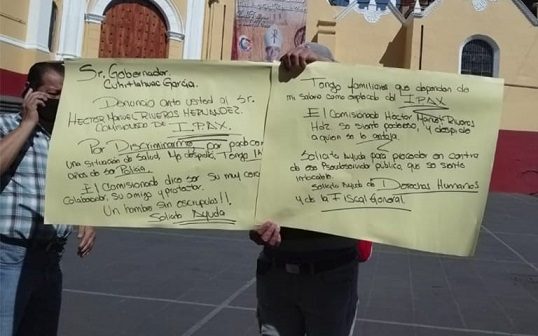 Sr. Gobernador
Cuitlahuac García.
Denuncio ante usted al Sr.
HECTOR MANUEL RIVEROS HERNANDEZ.
COMISIONADO DE I.PAX.
Por Discriminarme por padecer
una situación de salud. Me despidio, Tengo
años de ser Policia.
El Comisionado dice ser su muy cerca
colaborador, su amigo y protector.
Un hombre sin escrupulo!!
Solicito Ayuda
Tengo familiares que dependen de
mi salario como empleado del I.PAX
El Comisionado Hector Manuel Riveros
Hdz. se siente poderoso, y despide
a quien se le antoja.
Solicito Ayuda para proceder en contra
de ese Pseudoservidor publico, que se siente
intocable.
solicito Ayuda de Derechos Humanos
y de la Fiscal General